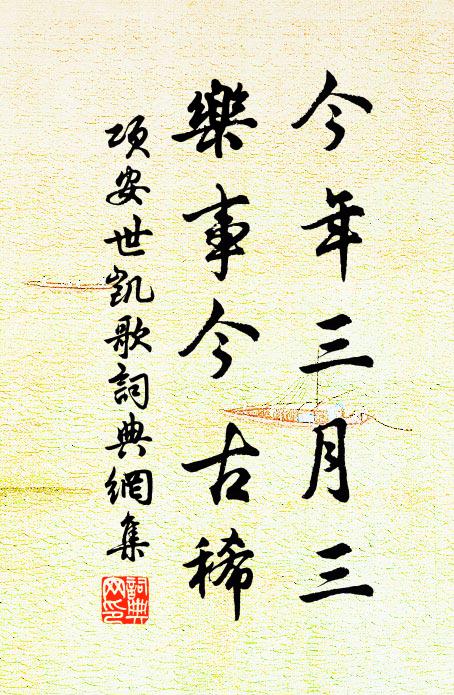 今年三月三
樂事今古稀
項安世凱歌詞典網集
詞典网印